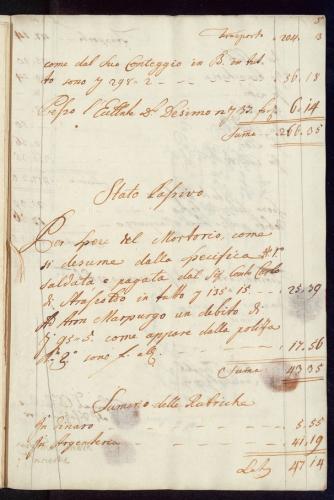 Trasporto - 204. 3
come dal suo Conteggio in B. in tut
to sono 7 298 - 2 - - - 36. 18
Presso l'Eccellente Dr. Desimon 7 32 6. 14
Suma 266. 35
Stato Passivo
Per Spese del Mortorio, come
si desume dalla specifica N 1°
saldata e pagata dal Sr. Conte Carlo
di Strasoldo in tutto 7 135 - 15 - - - 25. 39
Ad Aron Marpurgo un debito di
7 95 - 5 come appare dalla polizza
N° 2° sono - - - 17. 56
Suma 43. 35
Sumario delle Rubriche
In Denaro - - - 5. 55
In Argenteria - - - 41. 19
47. 14